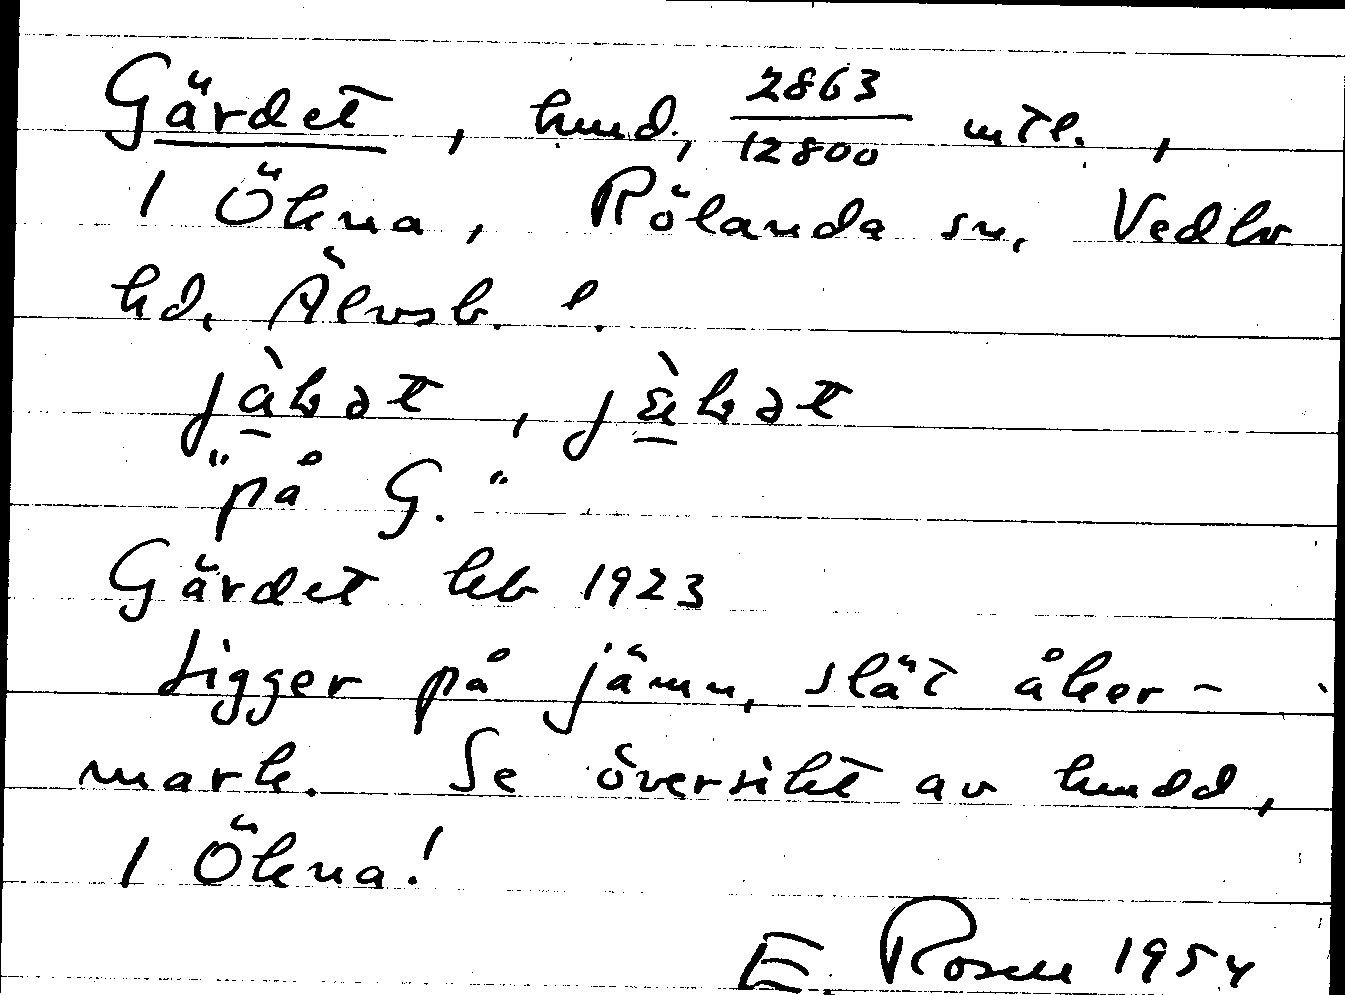 Gärdet, hmd, 2863/12800 mtl.,
1 Ökna, Rölanda sn, Vedbo
hd, Älvsb. l.
"på G."
Gärdet kb 1923
Ligger på jämn, slät åker-
mark. Se översikt av hmdd,
1 Ökna!
E. Rosell 1954